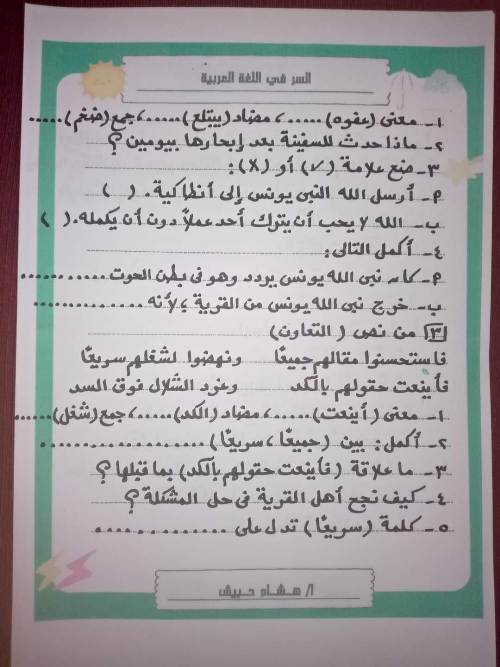 السر في اللغة العربية
١- معنى (عفوه) ..... ، مضاد (يبتلع) ..... ، جمع (ضخم) .....
٢- ماذا حدث للسفينة بعد إبحارها بيومين؟
٣- ضع علامة (✓) أو (X):
٩- أرسل الله النبى يونس إلى أنطاكية. ( )
ب- الله لا يحب أن يترك أحد عملاً دون أن يكمله. ( )
٤- أكمل التالى:
٩- كان نبى الله يونس يردد وهو فى بطن الحوت ...........
ب- خرج نبى الله يونس من القرية ؛ لأنه ..............
٣ من نص ( التعاون )
فاستحسنوا مقالهم جميعًا ونهضوا لشغلهم سريعًا
فأينعت حقولهم بالكد وغرد الشلال فوق السد
١- معنى (أينعت) ..... ، مضاد (الكد) ..... ، جمع (شغل) .....
٢- أكمل: بين (جميعًا ، سريعًا) ...................
٣- ما علاقة (فأينعت حقولهم بالكد) بما قبلها؟
٤- كيف نجح أهل القرية فى حل المشكلة؟
٥- كلمة (سريعًا) تدل على ..............
أ/ هشام حبيش